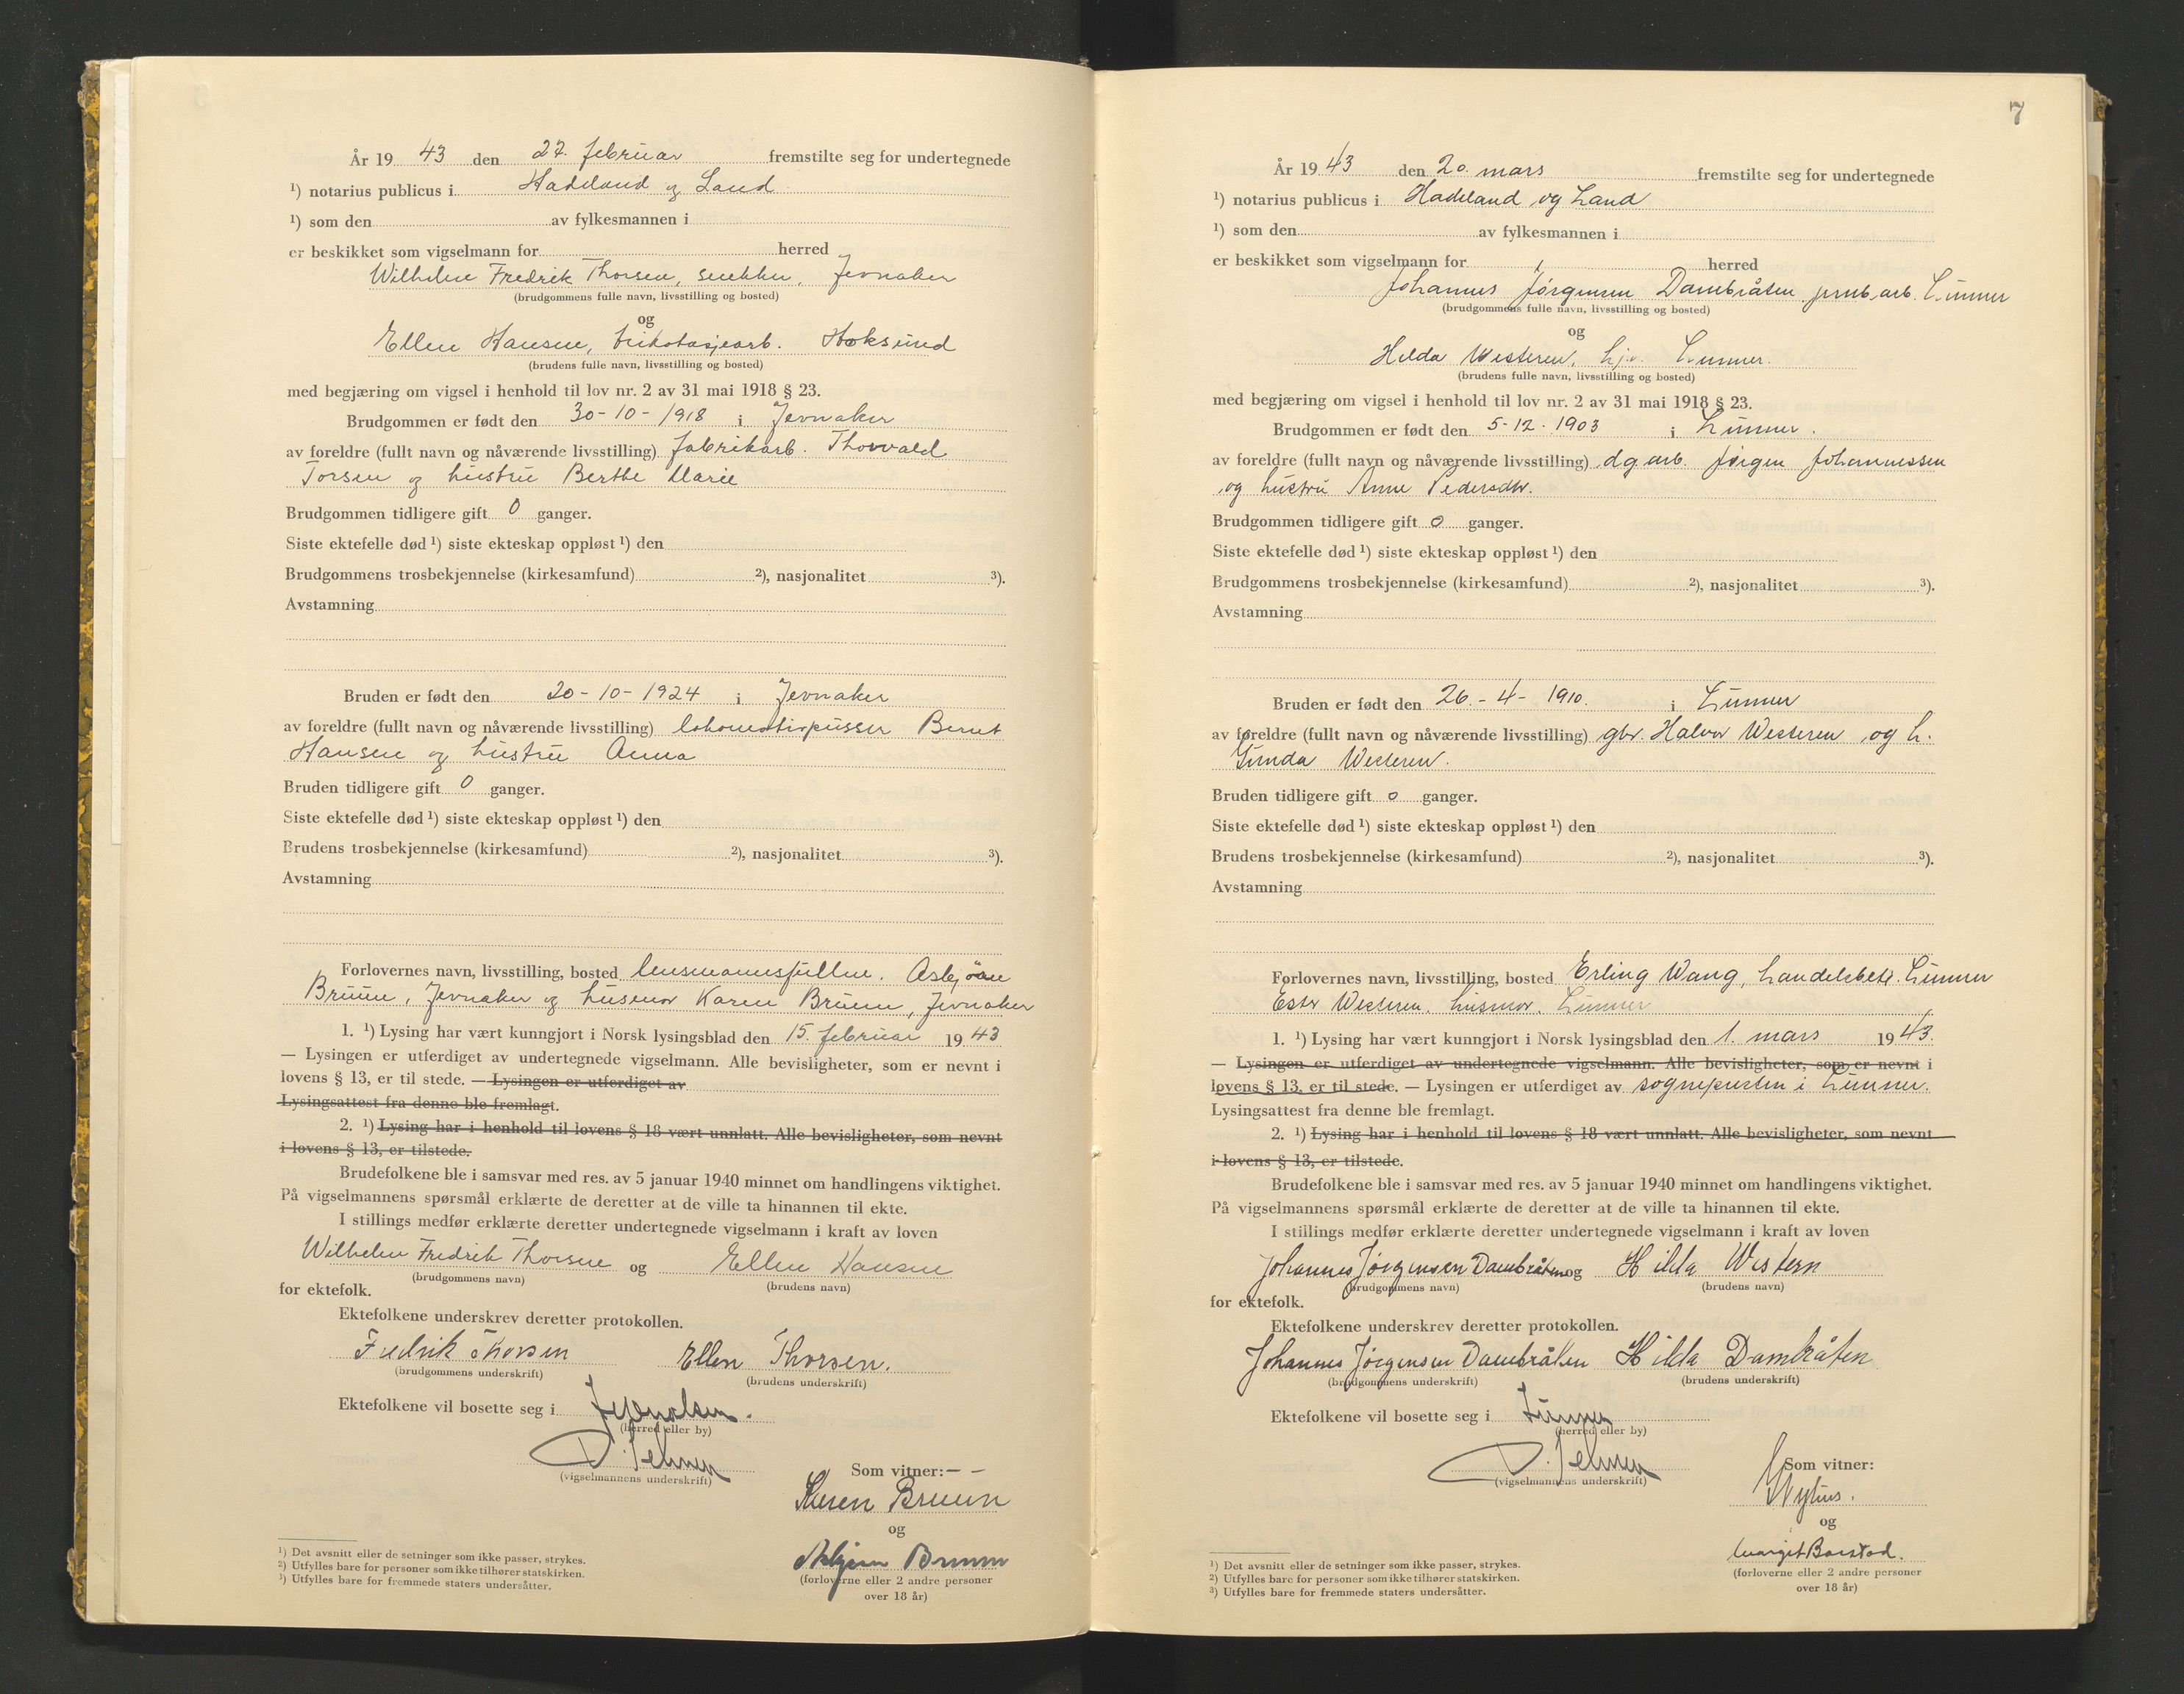 År 19 43 den 27. februar fremstilte seg for undertegnede
1) notarius publicus i Hadeland og Land
1) som den av fylkesmannen i
er beskikket som vigselmann for herred
Wilhelm Fredrik Thorsen, snekker, Jevnaker
(brudgommens fulle navn, livsstilling og bosted)
og
Ellen Hansen, trikotasjearb. Hoksund
(brudens fulle navn, livsstilling og bosted)
med begjæring om vigsel i henhold til lov nr. 2 av 31 mai 1918 § 23.
Brudgommen er født den 30-10-1918 i Jevnaker
av foreldre (fullt navn og nåværende livsstilling) fabrikarb. Thorvald
Torsen og hustru Berthe Marie
Brudgommen tidligere gift 0 ganger.
Siste ektefelle død 1) siste ekteskap oppløst 1) den
Brudgommens trosbekjennelse (kirkesamfund) 2), nasjonalitet 3).
Avstamning
Bruden er født den 20-10-1924 i Jevnaker
av foreldre (fullt navn og nåværende livsstilling) lokomotivpusser Bernt
Hansen og hustru Anna
Bruden tidligere gift 0 ganger.
Siste ektefelle død 1) siste ekteskap oppløst 1) den
Brudens trosbekjennelse (kirkesamfund) 2), nasjonalitet 3).
Avstamning
Forlovernes navn, livsstilling, bosted lensmannsfullm. Asbjørn
Bruun, Jevnaker og husmor Karen Bruun, Jevnaker
1. 1) Lysing har vært kunngjort i Norsk lysingsblad den 15. februar 19 43
— Lysingen er utferdiget av undertegnede vigselmann. Alle bevisligheter, som er nevnt i
lovens § 13, er til stede. — Lysingen er utferdiget av
Lysingsattest fra denne ble fremlagt.
2. 1) Lysing har i henhold til lovens § 18 vært unnlatt. Alle bevisligheter, som nevnt
i lovens § 13, er tilstede.
Brudefolkene ble i samsvar med res. av 5 januar 1940 minnet om handlingens viktighet.
På vigselmannens spørsmål erklærte de deretter at de ville ta hinannen til ekte.
I stillings medfør erklærte deretter undertegnede vigselmann i kraft av loven
Wilhelm Fredrik Thorsen og Ellen Hansen
(brudgommens navn) (brudens navn)
for ektefolk.
Ektefolkene underskrev deretter protokollen.
Fredrik Thorsen Ellen Thorsen.
(brudgommens underskrift) (brudens underskrift)
Ektefolkene vil bosette seg i
(herred eller by)
(vigselmannens underskrift)
Som vitner: — —
Karen Bruun
og
Asbjørn Bruun
(forloverne eller 2 andre personer
over 18 år)
1) Det avsnitt eller de setninger som ikke passer, strykes.
2) Utfylles bare for personer som ikke tilhører statskirken.
3) Utfylles bare for fremmede staters undersåtter.
7
År 19 43 den 20. mars fremstilte seg for undertegnede
1) notarius publicus i Hadeland og Land
1) som den av fylkesmannen i
er beskikket som vigselmann for herred
Johannes Jørgensen Dambråten jernb.arb. Lunner
(brudgommens fulle navn, livsstilling og bosted)
og
Hilda Westeren, hj.v. Lunner.
(brudens fulle navn, livsstilling og bosted)
med begjæring om vigsel i henhold til lov nr. 2 av 31 mai 1918 § 23.
Brudgommen er født den 5-12-1903 i Lunner.
av foreldre (fullt navn og nåværende livsstilling) dg.arb. Jørgen Johannessen
og hustru Anne Pedersdtr.
Brudgommen tidligere gift 0 ganger.
Siste ektefelle død 1) siste ekteskap oppløst 1) den
Brudgommens trosbekjennelse (kirkesamfund) 2), nasjonalitet 3).
Avstamning
Bruden er født den 26.-4-1910. i Lunner
av foreldre (fullt navn og nåværende livsstilling) gbr. Halvor Westeren og h.
Gunda Westeren.
Bruden tidligere gift 0 ganger.
Siste ektefelle død 1) siste ekteskap oppløst 1) den
Brudens trosbekjennelse (kirkesamfund) 2), nasjonalitet 3).
Avstamning
Forlovernes navn, livsstilling, bosted Erling Wang, handelsbest. Lunner
Ester Westeren, husmor, Lunner
1. 1) Lysing har vært kunngjort i Norsk lysingsblad den 1. mars 19 43.
— Lysingen er utferdiget av undertegnede vigselmann. Alle bevisligheter, som er nevnt i
lovens § 13, er til stede. — Lysingen er utferdiget av sognepresten i Lunner.
Lysingsattest fra denne ble fremlagt.
2. 1) Lysing har i henhold til lovens § 18 vært unnlatt. Alle bevisligheter, som nevnt
i lovens § 13, er tilstede.
Brudefolkene ble i samsvar med res. av 5 januar 1940 minnet om handlingens viktighet.
På vigselmannens spørsmål erklærte de deretter at de ville ta hinannen til ekte.
I stillings medfør erklærte deretter undertegnede vigselmann i kraft av loven
Johannes Jørgensen Dambråten og Hilda Western
(brudgommens navn) (brudens navn)
for ektefolk.
Ektefolkene underskrev deretter protokollen.
Johannes Jørgensen Dambråten Hilda Dambråten
(brudgommens underskrift) (brudens underskrift)
Ektefolkene vil bosette seg i Lunner
(herred eller by)
(vigselmannens underskrift)
Som vitner:
og
Margit Borstad.
(forloverne eller 2 andre personer
over 18 år)
1) Det avsnitt eller de setninger som ikke passer, strykes.
2) Utfylles bare for personer som ikke tilhører statskirken.
3) Utfylles bare for fremmede staters undersåtter.